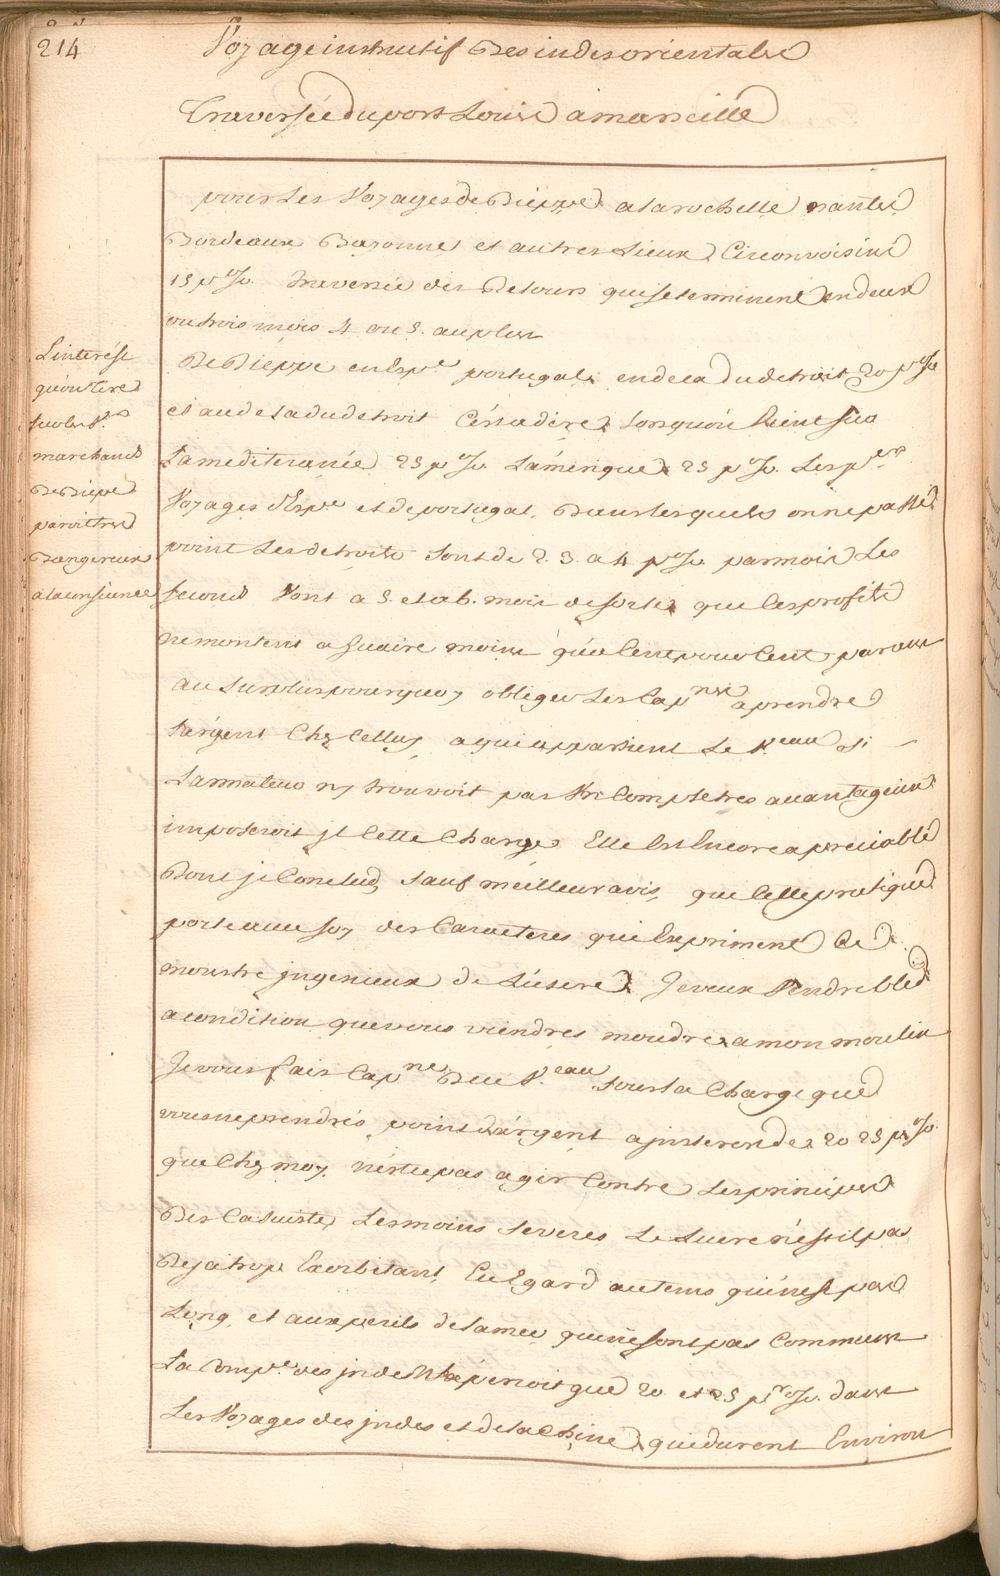 214
Voyage instructif Des indes orientales
Traversée du port Louis a marseille
pour Les Voyages de Dieppe a la rochelle nantes
Bordeaux Bayonne et autres Lieux Circonvoisins
15 p% traversée des Detours qui se terminent en deux
ou trois mois 4 ou 5. au plus
De Dieppe en Espe portugal endeca du detroit 20 p%
et au dela du detroit C'est a dire Lorsqu'on Vient sur
La mediteranée 25 p% L'amerique 25 p% Les prs
Voyages d'Espe et de portugal Dans lesquels on ne passe
point Les detroits sont de 2. 3. a 4 p% par mois Les
second Vont a 5. et a 6. mois de sorte que Les profits
ne montent a Guaire moins qu'a Cent pour Cent par an
au surplus pourquoy obliger Les Capnes a prendre
L'argent Chez Celluy a qui appartient Le Veau si
L'armateur ny trouvoit pas Un Compte tres avantageux
imposeroit jl Cette Charge Elle Est Encore apreciable
Dont je Conclud, sauf meilleur avis, que Cette pratique
porte avec soy des Caracteres qui Expriment Ce
monstre jngenieux de L'usure Je veux Vendre bled
a condition que vous viendres moudre a mon moulin
Je vous fais Capne Du Veau sous la Charge que
vous ne prendrés point d'argent a jnterest de 20 25 p%
que Chez moy. n'est ce pas agir Contre Les principes
Des Casuistes Les moins severes Le Lucre n'est il pas
Deja trop Exorbitant Eu Egard au tems qui n'est pas
Long, et aux perils de la mer qui ne sont pas Communs
La Compe des jndes ne prenoit que 20 et 25 pr % dans
Les Voyages des jndes et de la Chine qui durent Environ
L'interést
qu'on tire
sur les Vx
marchands
De Diepe
paroit tres
Dangereux
a la consience